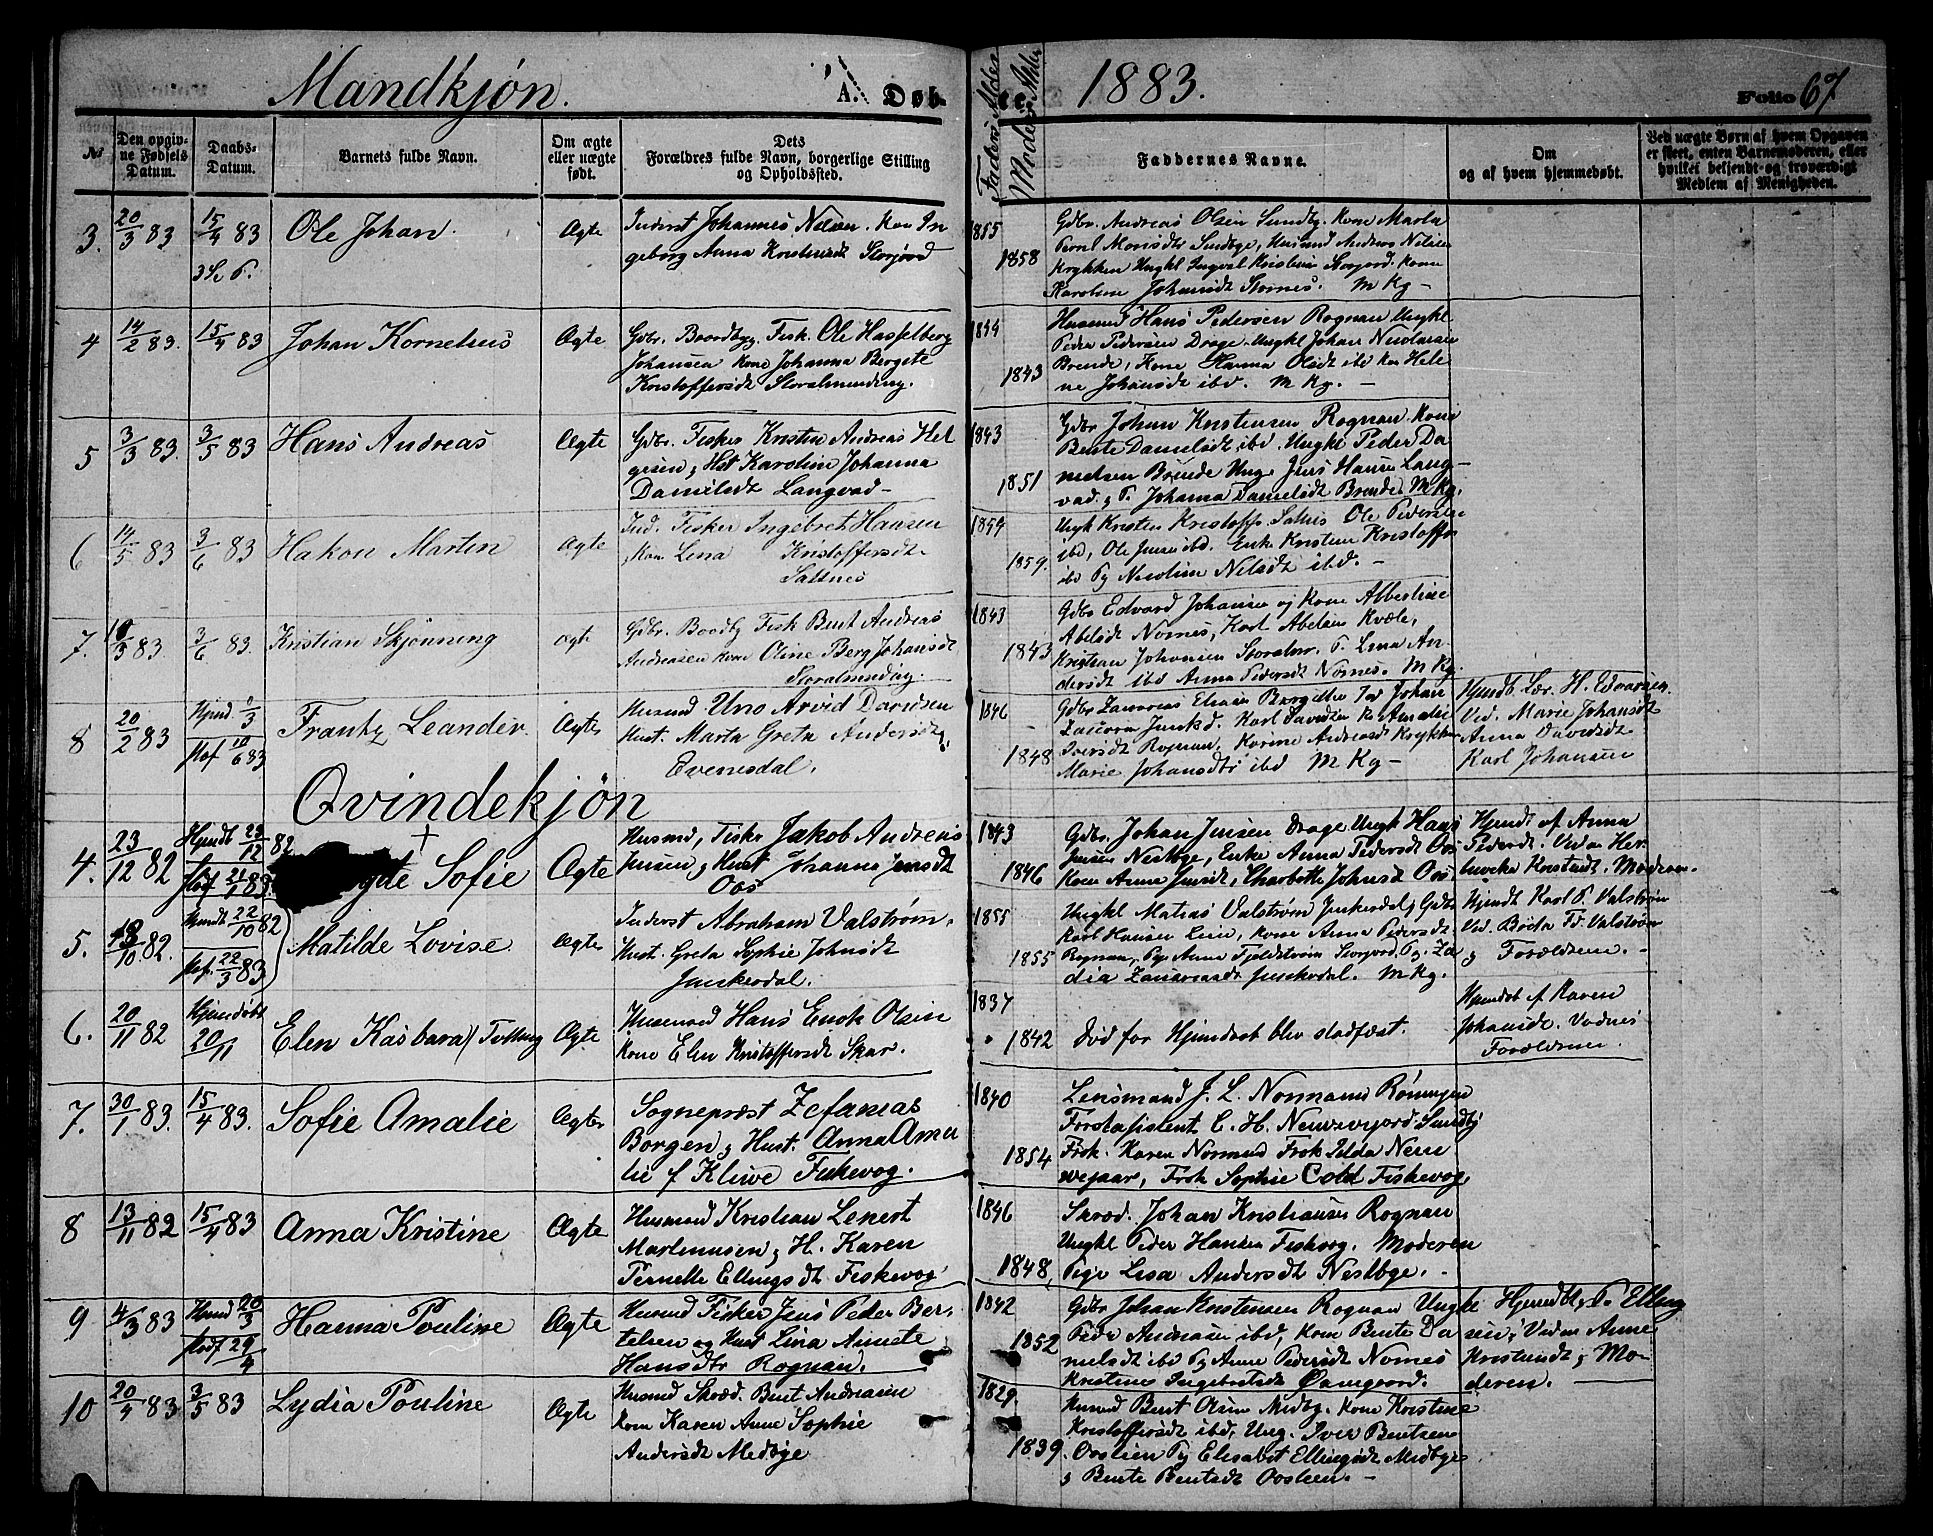 Mandkjøn. A. Døbte. 1883. Folio 67
No
Den opgivne Fødsels Datum.
Daabs-Datum.
Barnets fulde Navn.
Om ægte eller uægte født.
Dets Forældres fulde Navn, borgerlige Stilling og Opholdssted.
Faders Alder
Moders Alder
Faddernes Navne.
Om og af hvem hjemmedøbt.
Ved uægte Børn af hvem Opgaven er skeet, enten Barnemoderen, eller hvilket velkjendt og troværdigt Medlem af Menigheden.
3. 20/3 83 15/4 83 Ole Johan. Ægte Inderst Johannes Nilsen. Kone In
geborg Anna Kristensdt Storjord
1855
1858
Gdbr. Andreas Olsen Sundby. Kone Marta
Krykken Ungkl Ingval Kristensen Storjord. Kone
Karoline Johansdt Stornes. M Kg -
4 14/2 83. 15/4 83 Johan Kornelius Ægte Gdbr. Baadbyg. Fisk. Ole Hasselberg
Johansen Kone Johanna Bergete
Kristoffersdt Storalmending.
1843
Husmd Hans Pedersen Rognan Ungkl
Peder Pedersen Drage. Ungkl Johan Nicolaisen
Brende, Kone Hanna Olsdt ibd Kone Hele
ne Johansdt ibd. M Kg. -
5 3/3 83. 3/5 83 Hans Andreas Ægte Gdbr. Fisker Kristen Andreas Hel
gesen, Hst Karolina Johanna
Danielsdt Langvad -
1843
1851
Gdbr Johan Kristensen Rognan. Kone
Bente Danielsdt ibd. Ungkl Peder Da
nielsen Brende Ung. Jens Hansen Lang-
vad. P. Johanna Danielsdt Brende. M Kg.
6 14/5 83 3/6 83 Hakon Martin Ægte Ind. Fisker Ingebret Hansen
, Kone Lina Kristoffersdt.
Saltnes
1859
1859.
Ungk Kristen Kristoffs. Saltnes Ole Pedersen
ibd, Ole Jensen ibd. Enke Kristine Kristoffs
ibd Pg Nicoline Nilsdt ibd. -
7. 83 3/6 83. Kristian Skjønning Ægte Gdbr. Baadbg Fisk Bent Andreas
Andreasen Kone Oline Berg Johansdt
Storalmending.
1843
1843
Gdbr Edvard Johansen og Kone Albertine
Abelsdt Nornes, Karl Abelsen Kvæle,
Kristian Johansen Storalm. P. Lena An-
dersdt ibd Anna Pedersdt Nornes. M Kg.
8 20/2 83 Hjmd. 1/3
stdf 10/6 83 Frantz Leander. Ægte Husmd Uno Arvid Davidsen
Hust. Marta Greta Andersdt,
Evenesdal.
1846
1848
Marie Johansdtr ibd M Kg -
Hjmdbt Lær. H. Edvardsen.
Vid. Marie Johansdt
Anna Davidsdt
Karl Johansen
Qvindekjøn
4. 23/12 82 Hjmdbt 23/12 82
stdf 21/1 83 Sofie Ægte Husmd, Fisker Jakob Andreas
Jensen, Hust Johanna Jensdt
Oos
1843
1846
Gdbr. Johan Jensen Drage Ungk Hans
Jensen Nestbye, Enke Anna Pedersdt Oos
Kone Anne Jensdt, Charlotte Johnsdt Oos.
Hjmdt af Anna
Pedersdt. Vidne Her
Kristensdt. Moderen.
5. 18/10 82. Hjmdt 22/10 82
stdf. 22/3 83 Matilde Lovise Ægte Inderst Abraham Valstrøm.
Hust. Greta Sophie Johnsdt
Junkerdal.
1855
1855
Ungkl Matias Valstrøm Junkerdal, Gdbr
Karl Hansen Lien, Kone Anna Pedersdt
Rognan, Pg Anne Fjeldstrøm Storjord. Pg. Za
dia Zakariasdt Junkerdal. M Kg.
Hjmdt Karl P. Valstrøm
Vid. Brita Fr. Valstrøm
og Forældrene. -
6. 20/11 82 Hjemdøbt
20/11 Elen Kasbara / Tvilling Ægte Husmand Hans Enok Olsen
Kone Elen Kristoffersdt Skar.
1837
1842
Død før Hjemdaab blev stadfæst.
Hjemdøb af Karen
Johansdt. Vidnes
Forældrene.
7. 30/1 83. 15/4 83. Sofie Amalie Ægte Sogneprest Zefanias
Borgen, Hust. Anna Ama
lie f Kliwe Fiskevog.
1840
1854
Lensmand J. L. Normann Røningen
Forstassistent C. H. Sundby
Frøk. Karen Normand Frøk Ilda
Frøk Sophie Cold Fiskevog.
8 13/11 82 15/4 83 Anna Kristine Ægte Husmand Kristian Lenert
Martinusen, H. Karen
Pernelle Ellingsdt Fiskevog
1846
1848
Skræd. Johan Kristiansen Rognan
Ungkl Peder Hansen Fiskvog. Moderen
Pige Lisa Andersdt Nestbye. -
9 4/3 83 Hjmd 20/3
stdf 29/4 Hanna Pouline Ægte Husmd Fisker Jens Peder Ber-
telsen og Hust Lina Annete
Hansdtr Rognan.
1842
1852
Gdbr Johan Kristensen Rognan Ungkl
Peder Andreasen ibd, Kone Bente Da
nielsdt ibd Pg Anne Pedersdt Nornes
Kristine Ingebretsdt Øvregaard.
Hjemdbt, P. Elling
sen, Vidne Anne
Kristensdt, Mo-
deren.
10 20/4 83 3/5 83 Lydia Pouline Ægte Husmd Skræd. Bent Andreasen
Kone Karen Anne Sophie
Andersdt Medbye
1829.
1839.
Husmd Bent Olsen Medby. Kone Kristine
Kristoffersdt ibd, Ung. Iver Bentsen
Osslien Pg Elisabet Ellingsdt Medbye
, Bente Bentsdt Osslien. -